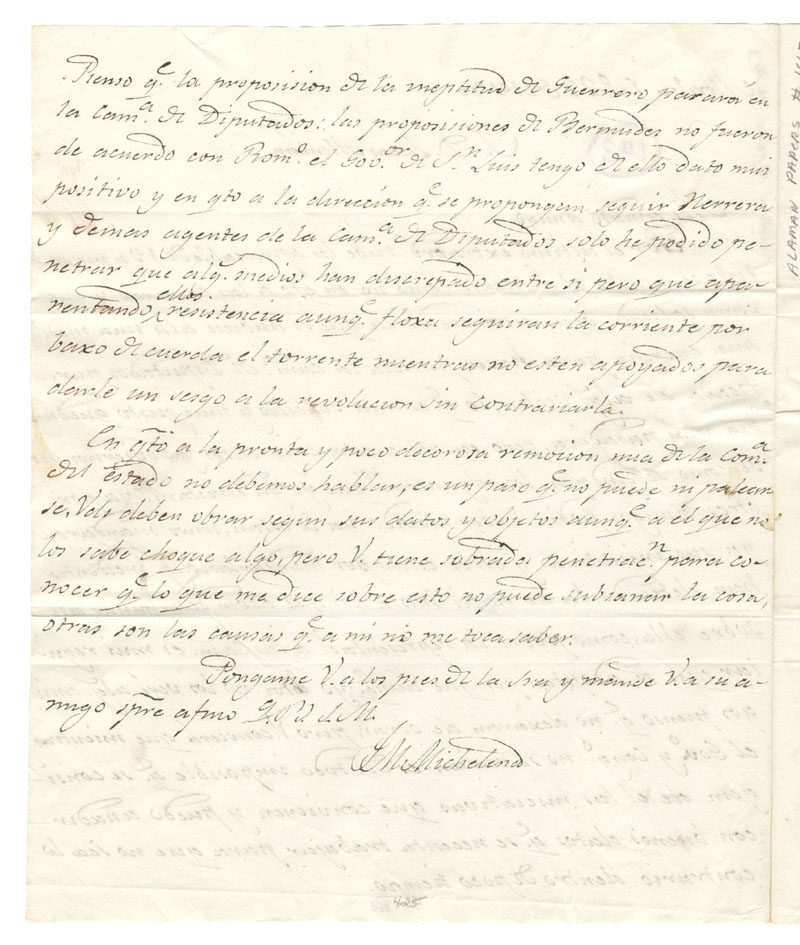 Pienso q.e la proposision de la ineptitud de Guerrero parará en
la Cam.a de Diputados: las proposisiones de Bermudes no fueron
de acuerdo con Rom.o el Gov.or de S.n Luis tengo de ello dato mui
positivo y en q.to a la direccion q.e se propongan seguir Herrera
y demas agentes de la Cam.a de Diputados solo he podido pe-
netrar que alg.s medios han discrepado entre si pero que apa-
rentando ellos resistencia aunq.e floxa seguiran la corriente por
baxo de cuerda el torrente mientras no esten apoyados para
darle un sesgo a la revolucion sin contrariarla.
En q.to a la pronta y poco decorosa remocion mia de la Com.a
del estado no debemos hablar, es un paso q.e no puede ni paliar
se, Vds deben obrar segun sus datos y objetos aunq.e a el que no
los sabe choque algo, pero V. tiene sobrada penetrac.n para co-
nocer q.e lo que me dice sobre esto no puede subsanar la cosa,
otras son las causas q.e a mi no me toca saber.
Pongame V. a los pies de la Sra y mande V. a su a-
migo spre afmo Q.B.S.M.
J M Michelena
425
ALAMAN PAPERS #